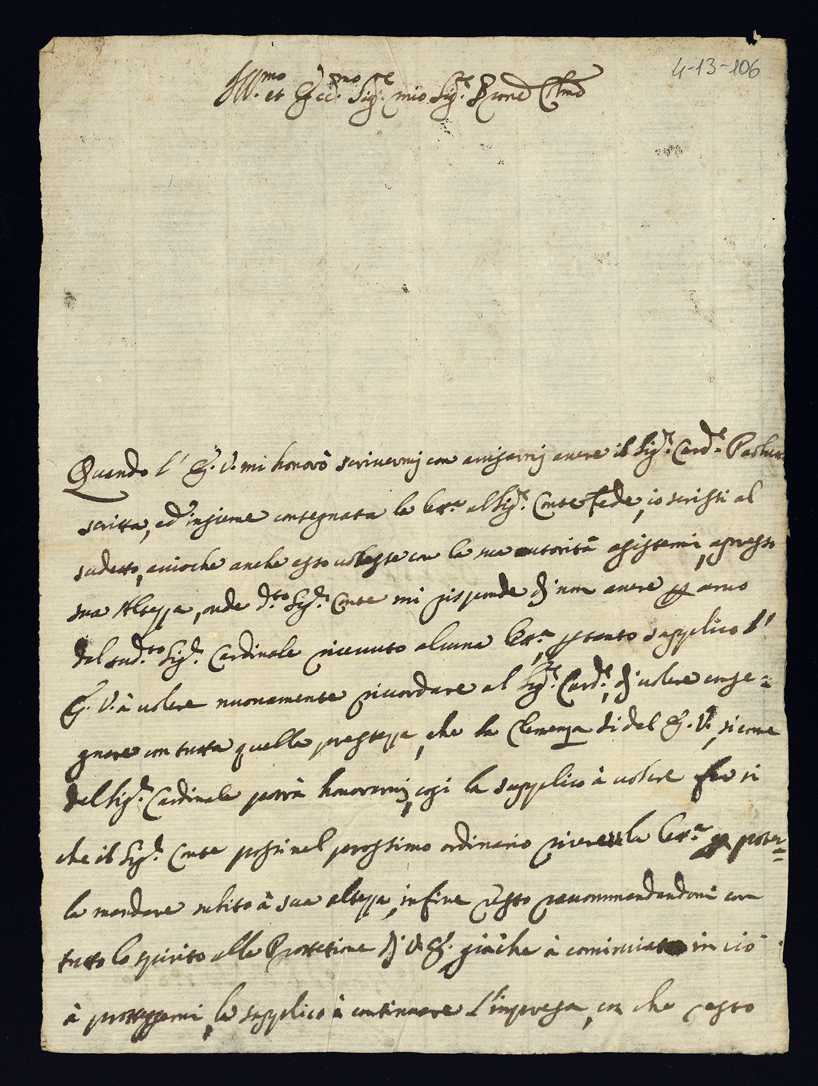 4-13-106
Ill.mo et Ecc.mo Sig.re mio Sig.re e Pron Col.mo
Quando l' E. V. mi honorò scrivermi con avisarmi avere il Sig.r Card.e
scritta, ed' insieme consegnata la lett.ra al Sig.r Conte Fede, io scrissi al
sudetto, accioche anche esso volesse con la sua autorità assistermi, apresso
sua Altezza, onde d.to Sig.r Conte mi risponde di non avere per anco
dal sud.to Sig.r Cardinale ricevuto alcuna lett.ra, per tanto supplico l'
E. V. à volere nuovamente ricordare al Sig.r Card.e, di volere conse=
gnare con tutta quella prestezza, che la Clemenza di del E. V., si come
del Sig.r Cardinale potrà honorarmi, così la supplico à volere far si
che il Sig.r Conte possi nel prossimo ordinario ricevere la lett.ra per poter=
la mandare subito à sua altezza, in fine resto raccommandandomi con
tutto lo spirito alla Protettione di V. E. giàche à cominciato in ciò
à proteggermi, la supplico à continuare l'impresa, con che resto